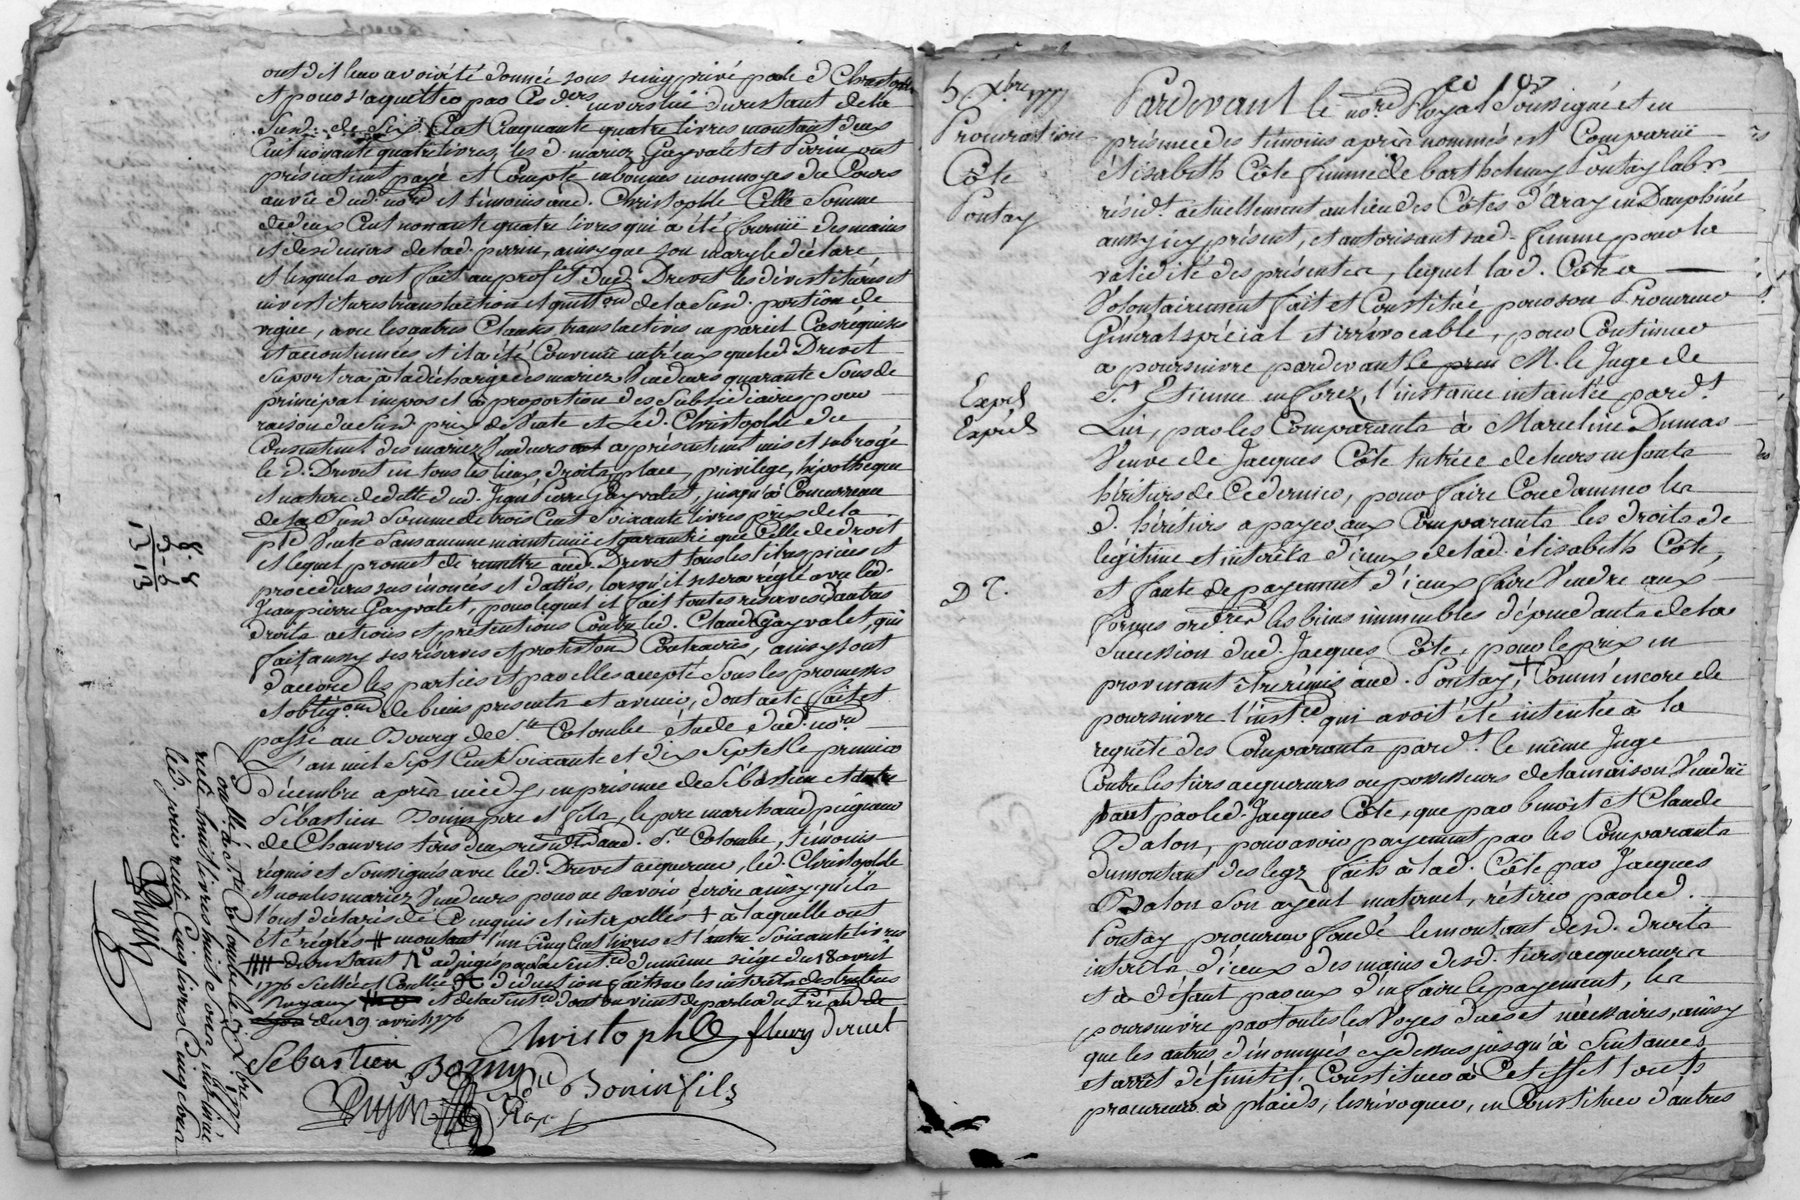 ont dit leur avoir été donnée sous seing privé par le d. Christophle
et pour s'aquitter par ces d.ers envers lui du restant de la
Susd. de Six Cent Cinquante quatre livres montant deux
Cent nonante quatre livres, les d. mariez Gayvalet et Perrin ont
présentement payé et Compté en bonnes monnoyes du Cours
au vû dud. no.re et témoins aud. Christophle Celle Somme
de deux Cent nonante quatre livres qui a été fournie des mains
et des deniers de lad. perrin, ainsy que son mary le déclare
et lesquels ont fait au profit dud. Drevet les dévestitures et
investitures translaction et quitt.on de la Susd. portion de
vigne, avec les autres Clauses translatives en pareil Cas réquises
et accoutumées et il a été Convenu entr'eux que led. Drevet
Suportera à la décharge des mariez Vendeurs quarante Sous de
principal impos et à proportion des Subsidiaires pour
raison du Susd. prix de Vente et Led. Christophle du
Consentement des mariez Vendeurs a présentement mis et subrogé
le d. Drevet en tous les lieux, droits, place, privilege, hipotheque
et nature de dette dud. Jean Pierre Gayvalet, jusqu'à Concurrence
de la Susd. Somme de trois Cent Soixante livres prix de la
p.te Vente Sans aucune maintenue et garantie que Celle de droit
et lequel promet de remettre aud. Drevet tous les titres, pièces et
procédures sus énoncés et dattés, lorsqu'il se sera réglé avec led.
Jean pierre Gayvalet, pour lequel il fait toutes réserves d'autres
droits actions et prétentions Contre led. Claude Gayvalet, qui
fait aussy ses réserves et protestons Contraires, ainsy sont
d'accord les parties et par elles accepté Sous les promesses
et oblig.ons de biens presents et avenir, dont acte fait et
passé au Bourg de S.te Colombe étude dud. no.re
L'an mil Sept Cent Soixante et dix Sept et le premier
décembre après midy, en présence de Sébastien et autre
Sébastien Bonin pere et fils, le pere marchand peigneur
de Chanvres tous deux résid.s aud. S.te Colombe, témoins
réquis et Soussignés avec led. Drevet acquereur, led. Christophle
et non les mariez Vendeurs pour ne savoir écrire ainsy qu'ils
l'ont déclaré de Ce enquis et interpellés + à laquelle ont
été réglés # montant l'un Cinq Cent livres et l'autre Soixante livres
du restant adjugés par la Sent.ce du même siège du 18 avril
1776 Scellée et Contllée déduction faitte les interêts des tailles
Royaux et de lad. Sent.ce dont on vient de parler
du 19 avril 1776
Christophle fleury drevet
Sébastien Bonin
Bonin fils
Dujin
8. 8
3 - 6
13 13
Contll. à S.te Colombe le Xbre 1777
reçu huit livres huit Sous
led. jour reçu Cinq livres Cinq Sous
Dujin
107
5 Xbre 1777
Procuration
Côte
Pontay
Expéd
Expéd
D T.
Pardevant le no.re Royal Soussigné et en
présence des témoins après nommés est Comparüe
élisabeth Côte femme de barthelemy Pontay lab.r
résid.t actuellement au lieu des Côtes d'Aray en Dauphiné
aussy icy présent, et autorisant sad. femme pour la
validité des présentes, lequel la d. Côte a
Volontairement fait et Constitué pour son Procureur
Général spécial et irrévocable, pour Continuer
a poursuivre pardevant M. le Juge de
S.t Etienne en forez, l'instance intantée pard.t
Lui, par les Comparants à Marceline Dumas
Veuve de Jacques Côte tutrice de leurs enfants
héritiers de Ce dernier, pour faire Condammer les
d. héritiers a payer aux Comparants les droits de
légitime et intérêts d'iceux de lad. élisabeth Côte,
et faute de payement d'iceux faire Vendre aux
formes ord.res les biens immeubles dépendants de la
Succession dud. Jacques Côte, pour le prix en
provenant être rémis aud. Pontay, + Comm' encore de
poursuivre l'inst.ce qui avoit été intentée à la
requête des Comparants pard.t le même Juge
Contre les tiers acquereurs ou possesseurs de la maison Vendüe
tant par led. Jacques Côte, que par benoît et Claude
Balon, pour avoir payement par les Comparants
du montant des legs faits à lad. Côte par Jacques
Balon Son ayeul maternel, rétirer par led.
Pontay procureur fondé le montant desd. droits
intérêts d'iceux des mains desd. tiers acquereurs
et à défaut par eux d'en faire le payement, les
poursuivre par toutes les Voyes dues et nécessaires, ainsy
que les autres dénommés cy dessus jusqu'à Sentences
et arrêt définitif, Constituer à Cet effet tous
procureurs à plaids, les révoquer, en Constituer d'autres